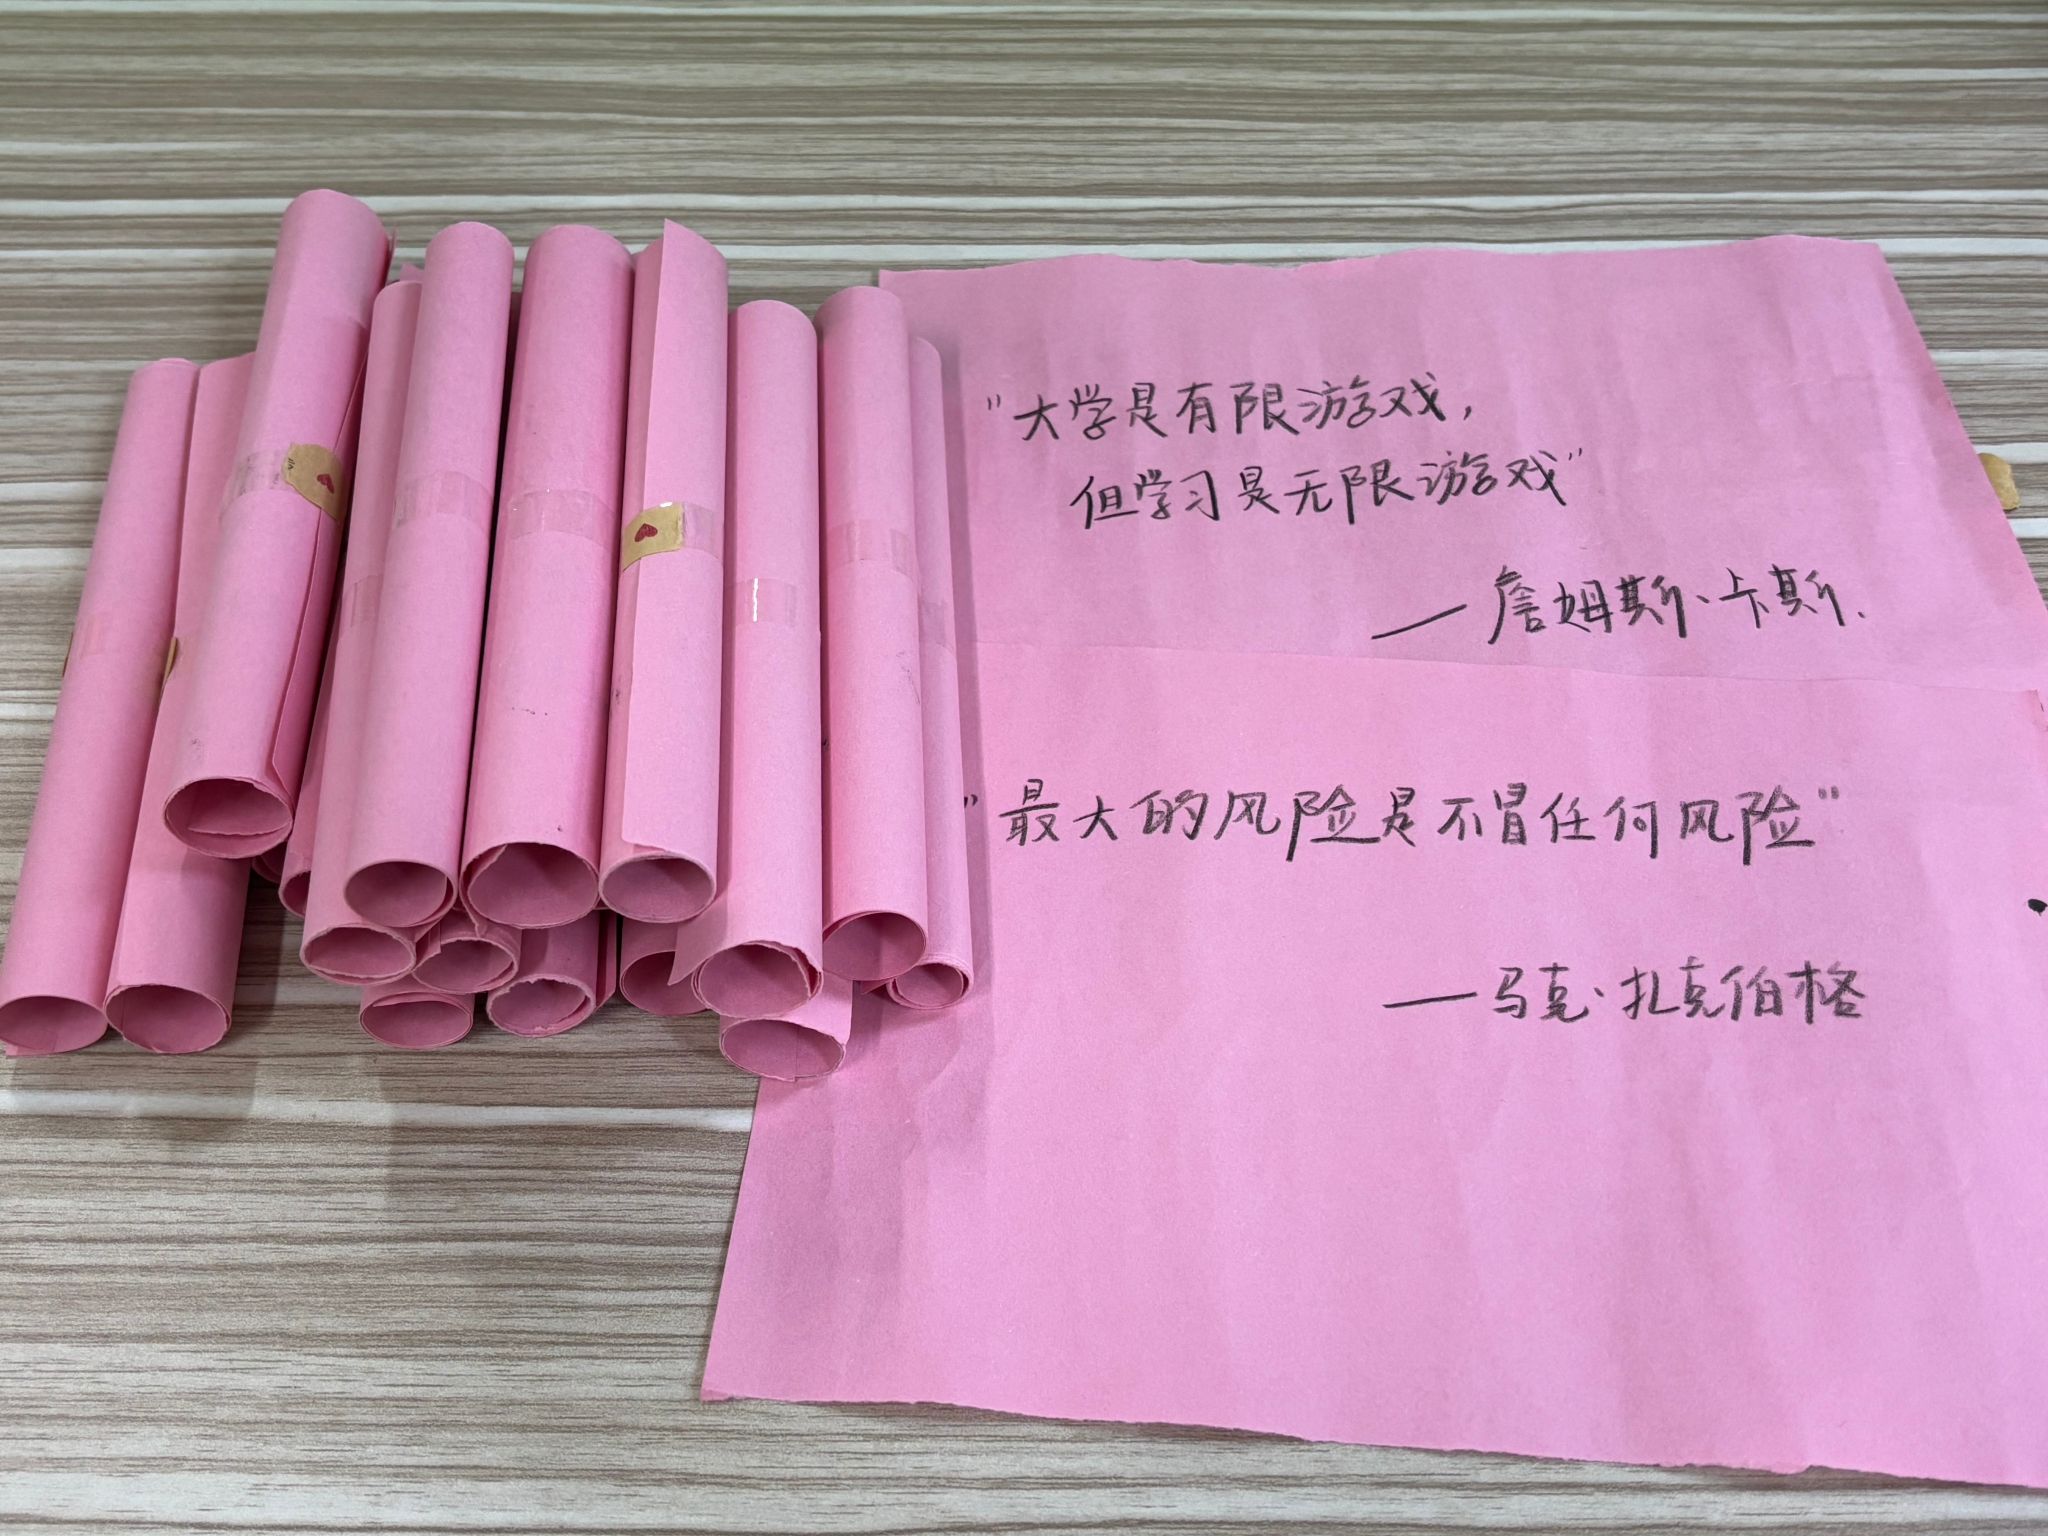 "大学是有限游戏，
但学习是无限游戏"
——詹姆斯·卡斯.
"最大的风险是不冒任何风险"
——马克·扎克伯格